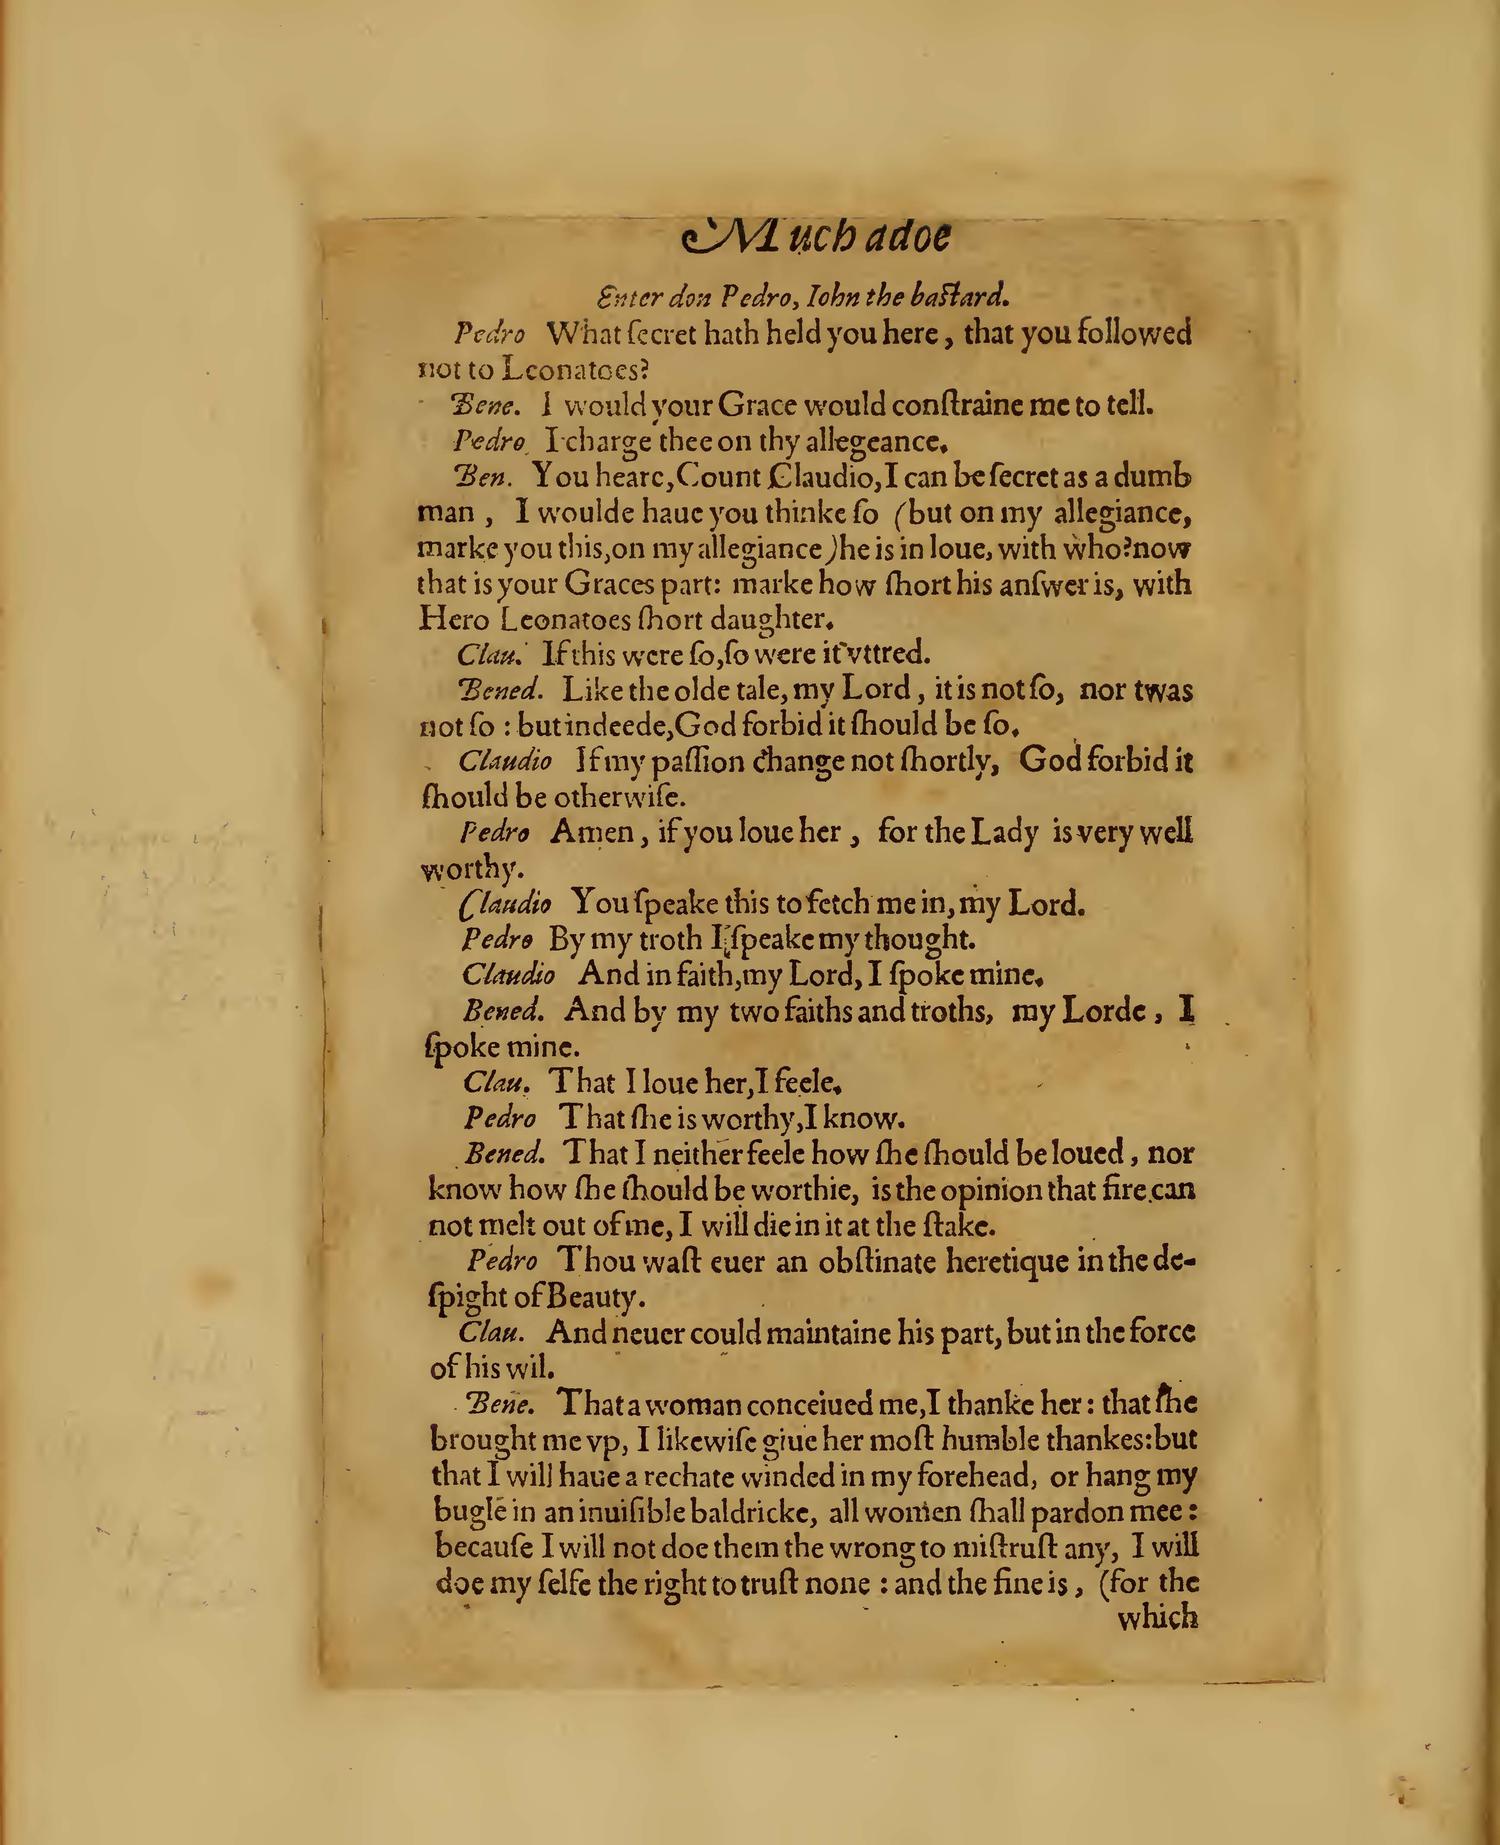 Much adoe
Enter don Pedro, Iohn the baſtard.
Pedro What ſecret hath held you here, that you followed
not to Leonatoes?
Bene. I would your Grace would conſtraine me to tell.
Pedro I charge thee on thy allegeance.
Ben. You heare, Count Claudio, I can be ſecret as a dumb
man, I woulde haue you thinke ſo (but on my allegiance,
marke you this, on my allegiance) he is in loue, with who? now
that is your Graces part: marke how ſhort his anſwer is, with
Hero Leonatoes ſhort daughter.
Clau. If this were ſo, ſo were it vttred.
Bened. Like the olde tale, my Lord, it is not ſo, nor twas
not ſo: but indeede, God forbid it ſhould be ſo.
Claudio If my paſſion change not ſhortly, God forbid it
ſhould be otherwiſe.
Pedro Amen, if you loue her, for the Lady is very well
worthy.
Claudio You ſpeake this to fetch me in, my Lord.
Pedro By my troth I ſpeake my thought.
Claudio And in faith, my Lord, I ſpoke mine.
Bened. And by my two faiths and troths, my Lorde, I
ſpoke mine.
Clau. That I loue her, I feele.
Pedro That ſhe is worthy, I know.
Bened. That I neither feele how ſhe ſhould be loued, nor
know how ſhe ſhould be worthie, is the opinion that fire can
not melt out of me, I will die in it at the ſtake.
Pedro Thou waſt euer an obſtinate heretique in the de-
ſpight of Beauty.
Clau. And neuer could maintaine his part, but in the force
of his wil.
Bene. That a woman conceiued me, I thanke her: that ſhe
brought me vp, I likewiſe giue her moſt humble thankes: but
that I will haue a rechate winded in my forehead, or hang my
bugle in an inuiſible baldricke, all women ſhall pardon mee:
becauſe I will not doe them the wrong to miſtruſt any, I will
doe my ſelfe the right to truſt none: and the fine is, (for the
which